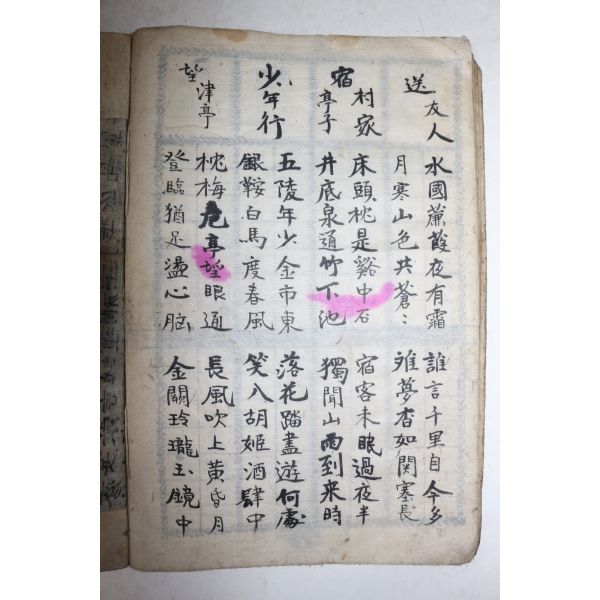 送友人
水國蒹葭夜有霜
月寒山色共蒼〻
誰言千里自今多
雖夢杳如関塞長
宿村家亭子
床頭枕是谿中石
井底泉通竹下池
宿客未眠過夜半
獨聞山雨到来時
少年行
五陵年少金市東
銀鞍白馬度春風
落花踏盡遊何處
笑入胡姬酒肆中
望津亭
枕梅危亭望眼通
登臨猶足盪心胸
長風吹上黄昏月
金闕玲瓏玉鏡中